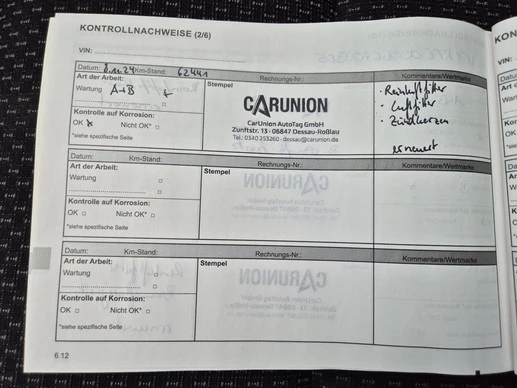 KONTROLLNACHWEISE (2/6)
VIN:
Datum: Km-Stand: 62441 Rechnungs-Nr.: Kommentare/Wertmarke
Art der Arbeit:
Wartung A+B
Kontrolle auf Korrosion:
OK Nicht OK*
*siehe spezifische Seite
Stempel
CARUNION
CarUnion AutoTag GmbH
Zunftstr. 13 · 06847 Dessau-Roßlau
Tel.: 0340 253260 · dessau@carunion.de
· Reinluftfilter
· Luftfilter
· Zündkerzen
erneuert
Datum: Km-Stand: Rechnungs-Nr.: Kommentare/Wertmarke
Art der Arbeit:
Wartung
Kontrolle auf Korrosion:
OK Nicht OK*
*siehe spezifische Seite
Stempel
Datum: Km-Stand: Rechnungs-Nr.: Kommentare/Wertmarke
Art der Arbeit:
Wartung
Kontrolle auf Korrosion:
OK Nicht OK*
*siehe spezifische Seite
Stempel
6.12
KON
VIN: